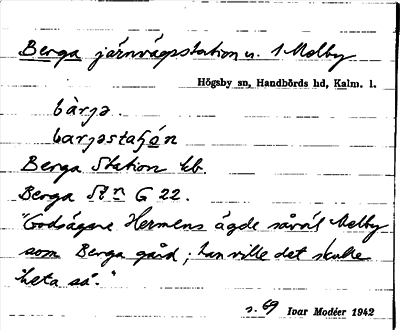 Berga järnvägsstation u. 1 Melby
Högsby sn, Handbörds hd, Kalm. l.
bàrja.
barjastaʃón
Berga Station kb.
Berga Stn G 22.
"Godsägare Hermens ägde såväl Melby
som Berga gård; han ville det skulle
heta så."
s. 69 Ivar Modéer 1942